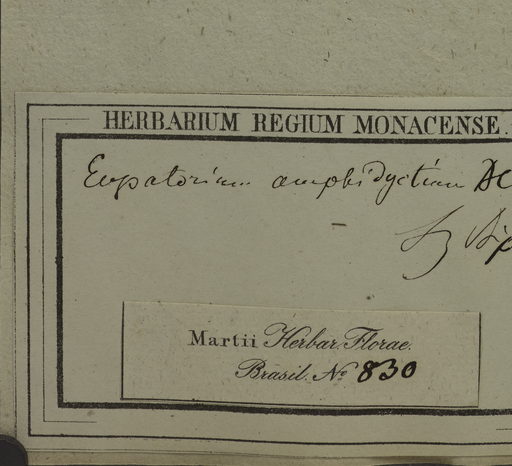 HERBARIUM REGIUM MONACENSE.
Eupatorium amphidyctium DC
Sz Bip
Martii Herbar. Florae.
Brasil. No 830